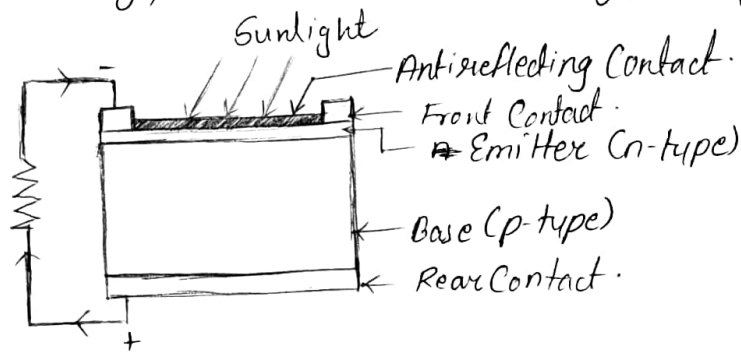 Sunlight
Antireflecting Contact.
-
Front Contact.
Emitter (n-type)
Base (p-type)
Rear Contact.
+